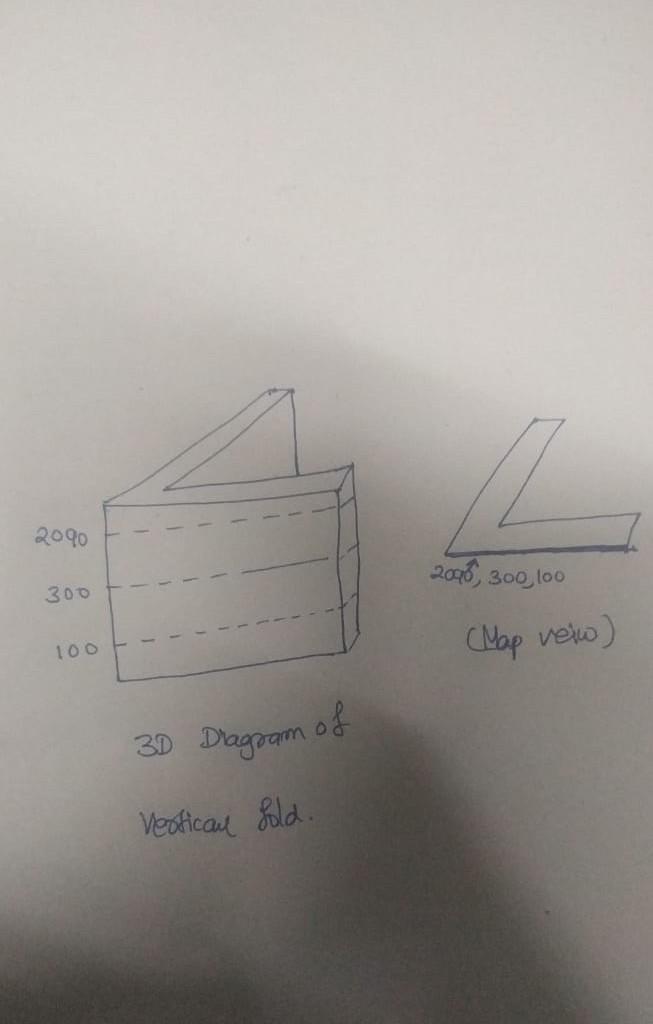 2090
300
100
2090, 300, 100
(Map veiw)
3D Diagram of
Vertical fold.